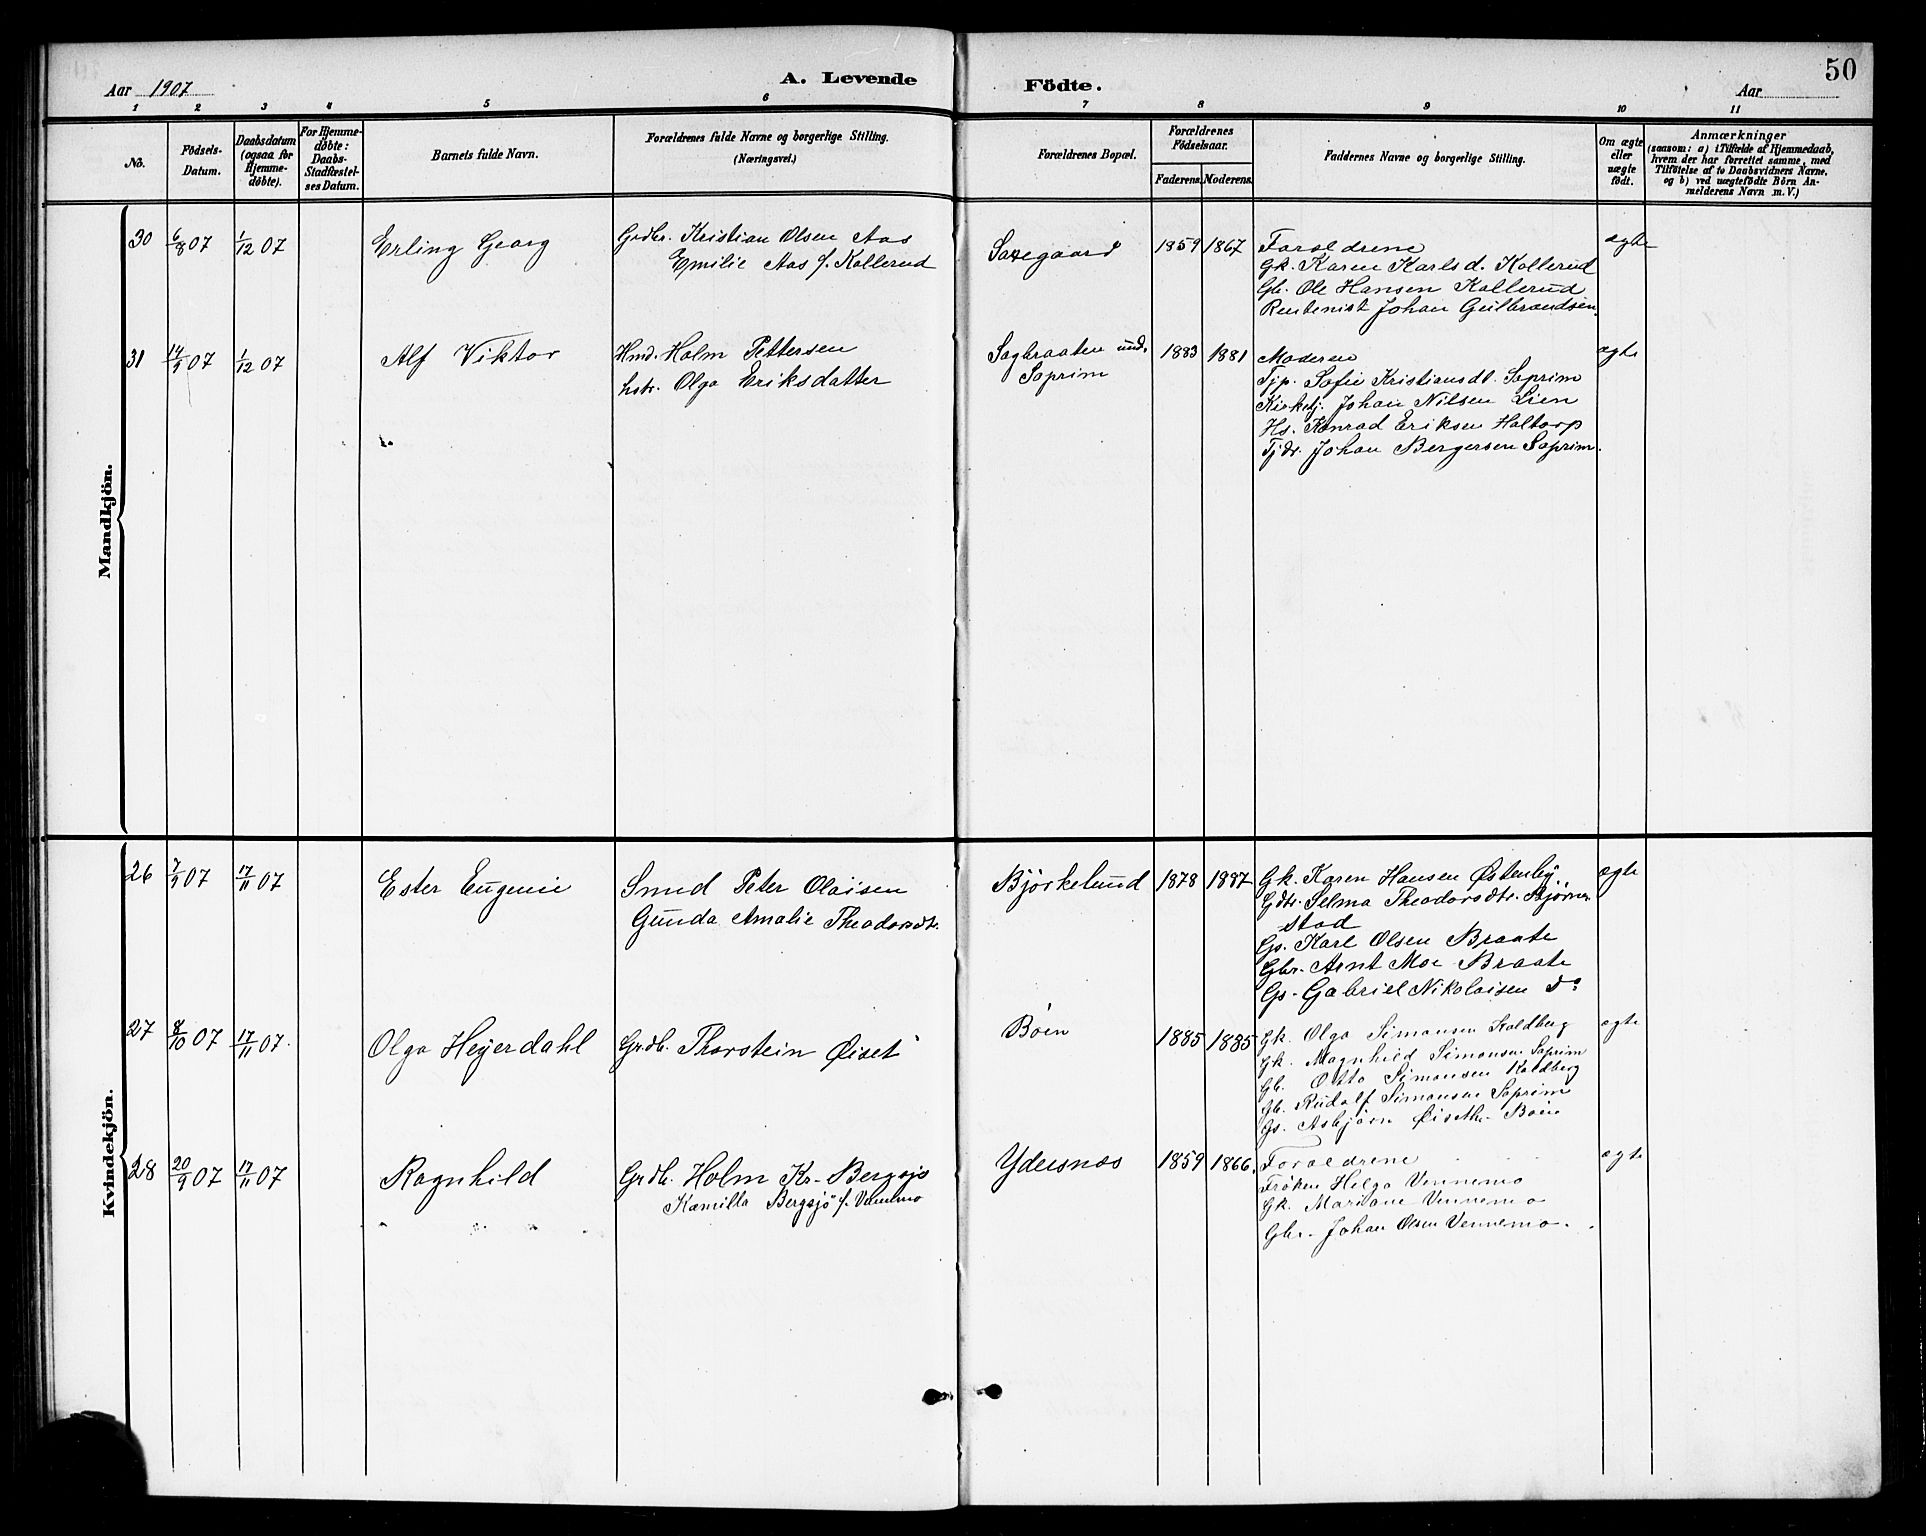 50
Aar 1907
A. Levende
Fødte.
Aar
1 2 3 4 5 6 7 8 9 10 11
No.
Födsels-
Datum.
Daabsdatum
(ogsaa for
Hjemme-
døbte).
For Hjemme-
døbte:
Daabs-
Stadfæstel-
ses Datum.
Barnets fulde Navn.
Forældrenes fulde Navne og borgerlige Stilling.
(Næringsvei.)
Forældrenes Bopæl.
Forældrenes
Födselsaar.
Faderens. Moderens.
Faddernes Navne og borgerlige Stilling.
Om ægte
eller
uægte
født.
Anmærkninger
(saasom: a) i Tilfælde af Hjemmedaab,
hvem der har forrettet samme, med
Tilføielse af to Daabsvidners Navne,
og b) ved uægtefødte Börn An-
melderens Navn m. V.)
Mandkjön.
30 6/8 07 1/12 07 Erling Georg
Grdbr. Kristian Olsen Aas
Emilie Aas f. Kollerud
Saxegaard 1859 1867
Foreldrene
Gk. Karen Karlsd. Kollerud
Gb. Ole Hansen Kollerud
Rentenist Johan Gulbrandsen.
ægte
31 14/9 07 1/12 07 Alf Viktor
Hmd. Holm Pettersen
hstr. Olga Eriksdatter
Sagbraaten und.
Saprim
1883 1881
Moderen
Tjp. Sofie Kristiansdt. Saprim
Kirketj. Johan Nilsen Lien
Hs. Konrad Eriksen Haltorp
Tjdr. Johan Bergersen Saprim.
ægte
Kvindekjön.
26 7/9 07 17/11 07 Ester Eugenie
Smed Peter Olaisen
Gunda Amalie Theodorsdtr.
Bjørkelund 1878 1887
Gk. Karen Hansen Østenby
Gdtr. Selma Theodorsdtr. Bjørne-
stad
Gs. Karl Olsen Braate
Gbr. Arnt Moe Braate
Gs. Gabriel Nikolaisen do
ægte
27 8/10 07 17/11 07. Olga Heyerdahl
Grdb. Thorstein Øiset
Bøen 1885 1885
Gk. Olga Simonsen Koldberg
Gk. Magnhild Simonsen Saprim
Gb. Otto Simonsen Koldberg
Gb. Rudolf Simonsen Saprim
Gs. Asbjørn Øiseth Bøen
ægte
28 20/9 07 17/11 07 Ragnhild
Grdb. Holm Kr. Bergsjø
Kamilla Bergsjø f. Vennemo
Ydersnes 1859 1866.
Foreldrene
Frøken Helga Vennemo
Gk. Mariane Vennemo
Gbr. Johan Olsen Vennemo.
ægte